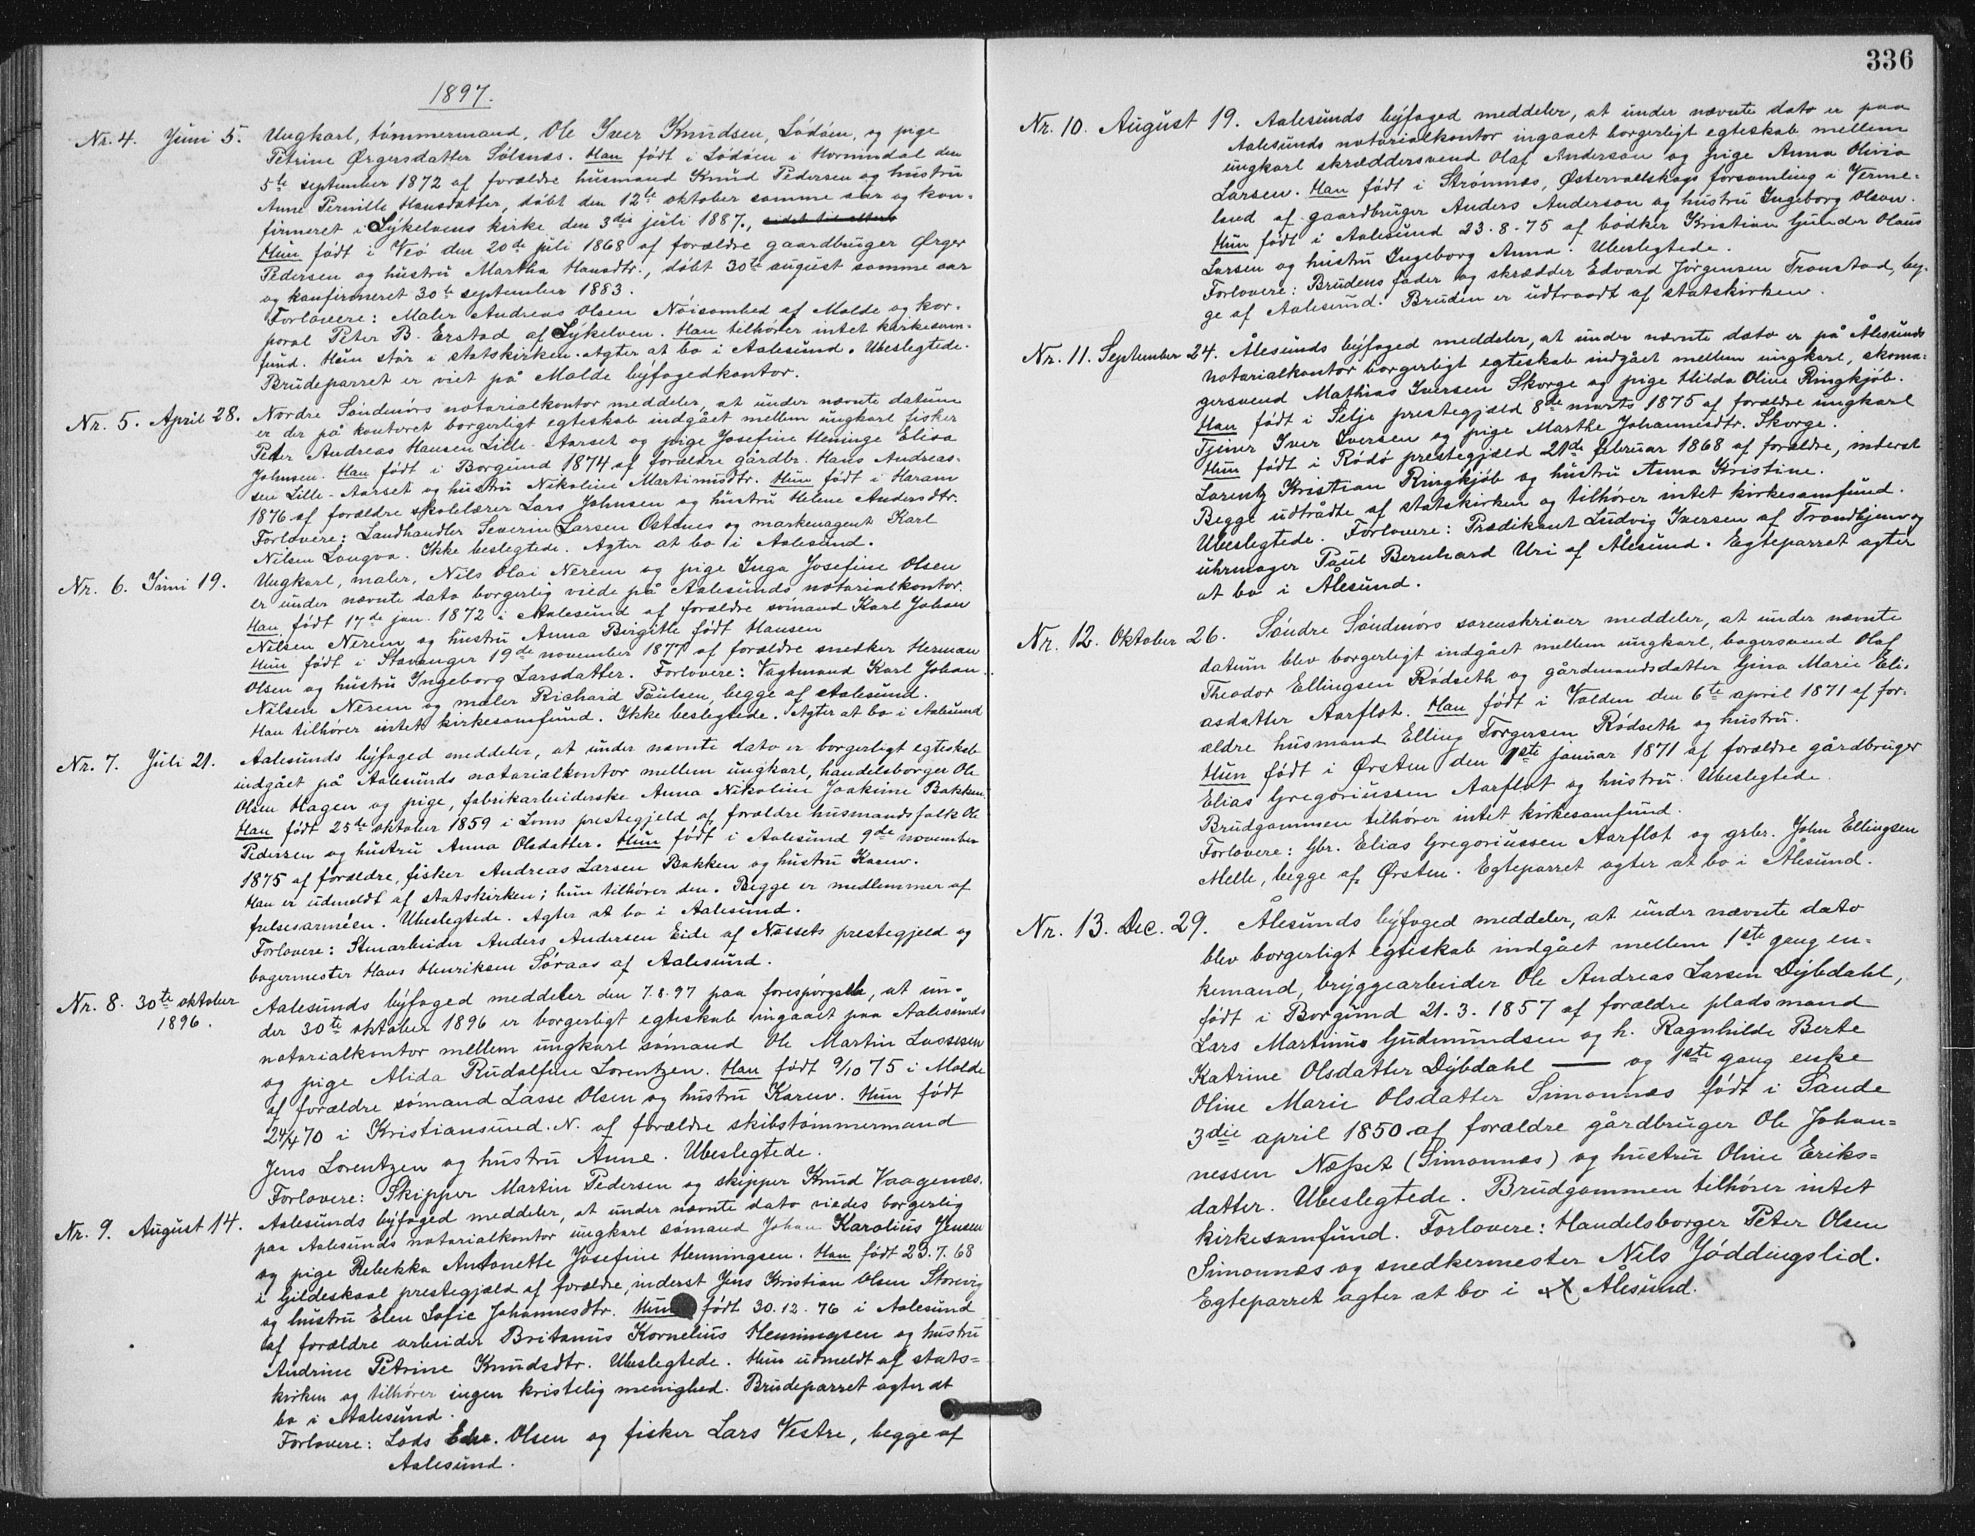 1897.
Nr. 4. Juni 5. Ungkarl, tømmermand, Ole Iver Knudsen, Lødøen, og pige
Petrine Ørgersdatter Sølsnæs. Han født i Lødøen i Hornindal den
5te september 1872 af forældre husmand Knud Pedersen og hustru
Anne Pernille Hansdatter, døbt den 12te oktober samme aar og kon-
firmeret i Sykelvens kirke den 3die juli 1887.,
Hun født i Veø den 20de juli 1868 af forældre gaardbruger Ørger
Pedersen og hustru Martha Hansdtr., døbt 30te august samme aar
og konfirmeret 30te september 1883.
Forlovere: Maler Andreas Olsen Nøisomhed af Molde og kor-
poral Peter B. Erstad af Sykelven. Han tilhører intet kirkesam-
fund. Hun står i statskirken. Agter at bo i Aalesund. Ubeslegtede.
Brudeparret er viet på Molde byfogedkontor.
Nr. 5. April 28. Nordre Søndmørs notarialkontor meddeler, at under nævnte datum
er der på kontoret borgerligt egteskab indgået mellem ungkarl fisker
Peter Andreas Hansen Lille-Aarset og pige Josefine Heninge Elisa
Johnsen. Han født i Borgund 1874 af forældre gårdbr. Hans Andreas-
sen Lille-Aarset og hustru Nikoline Martinusdtr. Hun født i Haram
1876 af forældre skolelærer Lars Johnsen og hustru Helene Andersdtr.
Forlovere: Landhandler Severin Larsen Østnes og markenagent Karl
Nilsen Longva. Ikke beslegtede. Agter at bo i Aalesund.
Nr. 6. Juni 19. Ungkarl, maler, Nils Olai Nerem og pige Inga Josefine Olsen
er under nævnte dato borgerlig viede på Aalesunds notarialkontor.
Han født 17de jan. 1872 i Aalesund af forældre sømand Karl Johan
Nilsen Nerem og hustru Anna Birgitte født Hansen
Hun født i Stavanger 19de november 1877 af forældre snedker Herman
Olsen og hustru Ingeborg Larsdatter. Forlovere: Vagtmand Karl Johan
Nilsen Nerem og maler Richard Paulsen, begge af Aalesund.
Han tilhører intet kirkesamfund. Ikke beslegtede. Agter at bo i Aalesund
Nr. 7. Juli 21. Aalesunds byfoged meddeler, at under nævnte dato er borgerligt egteskab
indgået på Aalesunds notarialkontor mellem ungkarl, handelsborger Ole
Olsen Hagen og pige, fabrikarbeiderske Anna Nikoline Joakime Bakken.
Han født 25de oktober 1859 i Loms prestegjeld af forældre husmandsfolk Ole
Pedersen og hustru Anna Olsdatter. Hun født i Aalesund 9de november
1875 af forældre, fisker Andreas Larsen Bakken og hustru Karen.
Han er udmeldt af statskirken; hun tilhører den. Begge er medlemmer af
frelsesarméen. Ubeslegtede. Agter at bo i Aalesund.
Forlovere: Stenarbeider Anders Andersen Eide af Næssets prestegjeld og
bagermester Hans Henriksen Søraas af Aalesund.
Nr. 8. 30te oktober 1896. Aalesunds byfoged meddeler den 7.8.97 paa forespørgsel, at un-
der 30te oktober 1896 er borgerligt egteskab ingaaet paa Aalesunds
notarialkontor mellem ungkarl sømand Ole Martin Lassesen
og pige Alida Rudolfine Lorentzen. Han født 9/10 75 i Molde
af forældre sømand Lasse Olsen og hustru Karen. Hun født
24/4 70 i Kristiansund. N. af forældre skibstømmermand
Jens Lorentzen og hustru Anne. Ubeslegtede.
Forlovere: Skipper Martin Pedersen og skipper Knud Vaagenæs.
Nr. 9. August 14. Aalesunds byfoged meddeler, at under nævnte dato viedes borgerlig
paa Aalesunds notarialkontor ungkarl sømand Johan Karolius Jensen
og pige Rebekka Antonette Josefine Henningsen. Han født 23.7.68
i Gildeskaal prestegjæld af forældre, inderst Jens Kristian Olsen Storvig
og hustru Elen Sofie Johannesdtr. Hun født 30.12.76 i Aalesund
af forældre arbeider Britanus Kornelius Henningsen og hustru
Andrine Petrine Knudsdtr. Ubeslegtede. Hun udmeldt af stats=
kirken og tilhører ingen kristelig menighed. Brudeparret agter at
bo i Aalesund.
Forlovere: Lods Olsen og fisker Lars Vestre, begge af
Aalesund.
336
Nr. 10. August 19. Aalesunds byfoged meddeler, at under nævnte dato er paa
Aalesunds notarialkontor ingaaet borgerligt egteskab mellem
ungkarl skræddersvend Olaf Anderson og pige Anna Olivia
Larsen. Han født i Strømnæs, Østervallskogs forsamling i Verme-
land af gaardbruger Anders Anderson og hustru Ingeborg Olson.
Hun født i Aalesund 23.8.75 af bødker Kristian Gunder Olaus
Larsen og hustru Ingeborg Anna. Ubeslegtede.
Forlovere: Brudens fader og skrædder Edvard Jørgensen Tronstad, beg-
ge af Aalesund. Bruden er udtraadt af statskirken.
Nr. 11. September 24. Ålesunds byfoged meddeler, at under nævnte dato er på Ålesunds
notarialkontor borgerligt egteskab indgået mellem ungkarl, skoma-
gersvend Mathias Iversen Skorge og pige Hilda Oline Ringkjøb.
Han født i Selje prestegjæld 8de marts 1875 af forældre ungkarl
Tjener Iver Iversen og pige Marthe Johannesdtr. Skorge.
Hun født i Rødø prestegjæld 21de februar 1868 af forældre, inderst
Lorentz Kristian Ringkjøb og hustru Anna Kristine.
Begge udtrådte af statskirken og tilhører intet kirkesamfund.
Ubeslegtede. Forlovere: Prædikant Ludvig Iversen af Trondhjem og
uhrmager Paul Bernhard Uri af Ålesund. Egteparret agter
at bo i Ålesund.
Nr. 12. Oktober 26. Søndre Søndmørs sorenskriver meddeler, at under nævnte
datum blev borgerligt indgået mellem ungkarl, bagersvend Olaf
Theodor Ellingsen Rødseth og gårdmandsdatter Gina Marie Eli-
asdatter Aarflot. Han født i Volden den 6te april 1871 af for-
ældre husmand Elling Torgersen Rødseth og hustru.
Hun født i Ørsten den 1ste januar 1871 af forældre gårdbruger
Elias Gregoriussen Aarflot og hustru. Ubeslegtede.
Brudgommen tilhører intet kirkesamfund.
Forlovere: Gbr. Elias Gregoriussen Aarflot og gbr. John Ellingsen
Melle, begge af Ørsten. Egteparret agter at bo i Ålesund.
Nr. 13. Dec. 29. Ålesunds byfoged meddeler, at under nævnte dato
blev borgerligt egteskab indgået mellem 1ste gang en-
kemand, bryggearbeider Ole Andreas Larsen Dybdahl,
født i Borgund 21.3.1857 af forældre pladsmand
Lars Martinus Gudmundsen og h. Ragnhilde Berte
Katrine Olsdatter Dybdahl — og 1ste gang enke
Oline Marie Olsdatter Simonnæs født i Sande
3die april 1850 af forældre gårdbruger Ole Johan=
nessen Næsset (Simonnæs) og hustru Oline Eriks=
datter. Ubeslegtede. Brudgommen tilhører intet
kirkesamfund. Forlovere: Handelsborger Peter Olsen
Simonnæs og snedkermester Nils Jøddingslid.
Egteparret agter at bo i Ålesund.